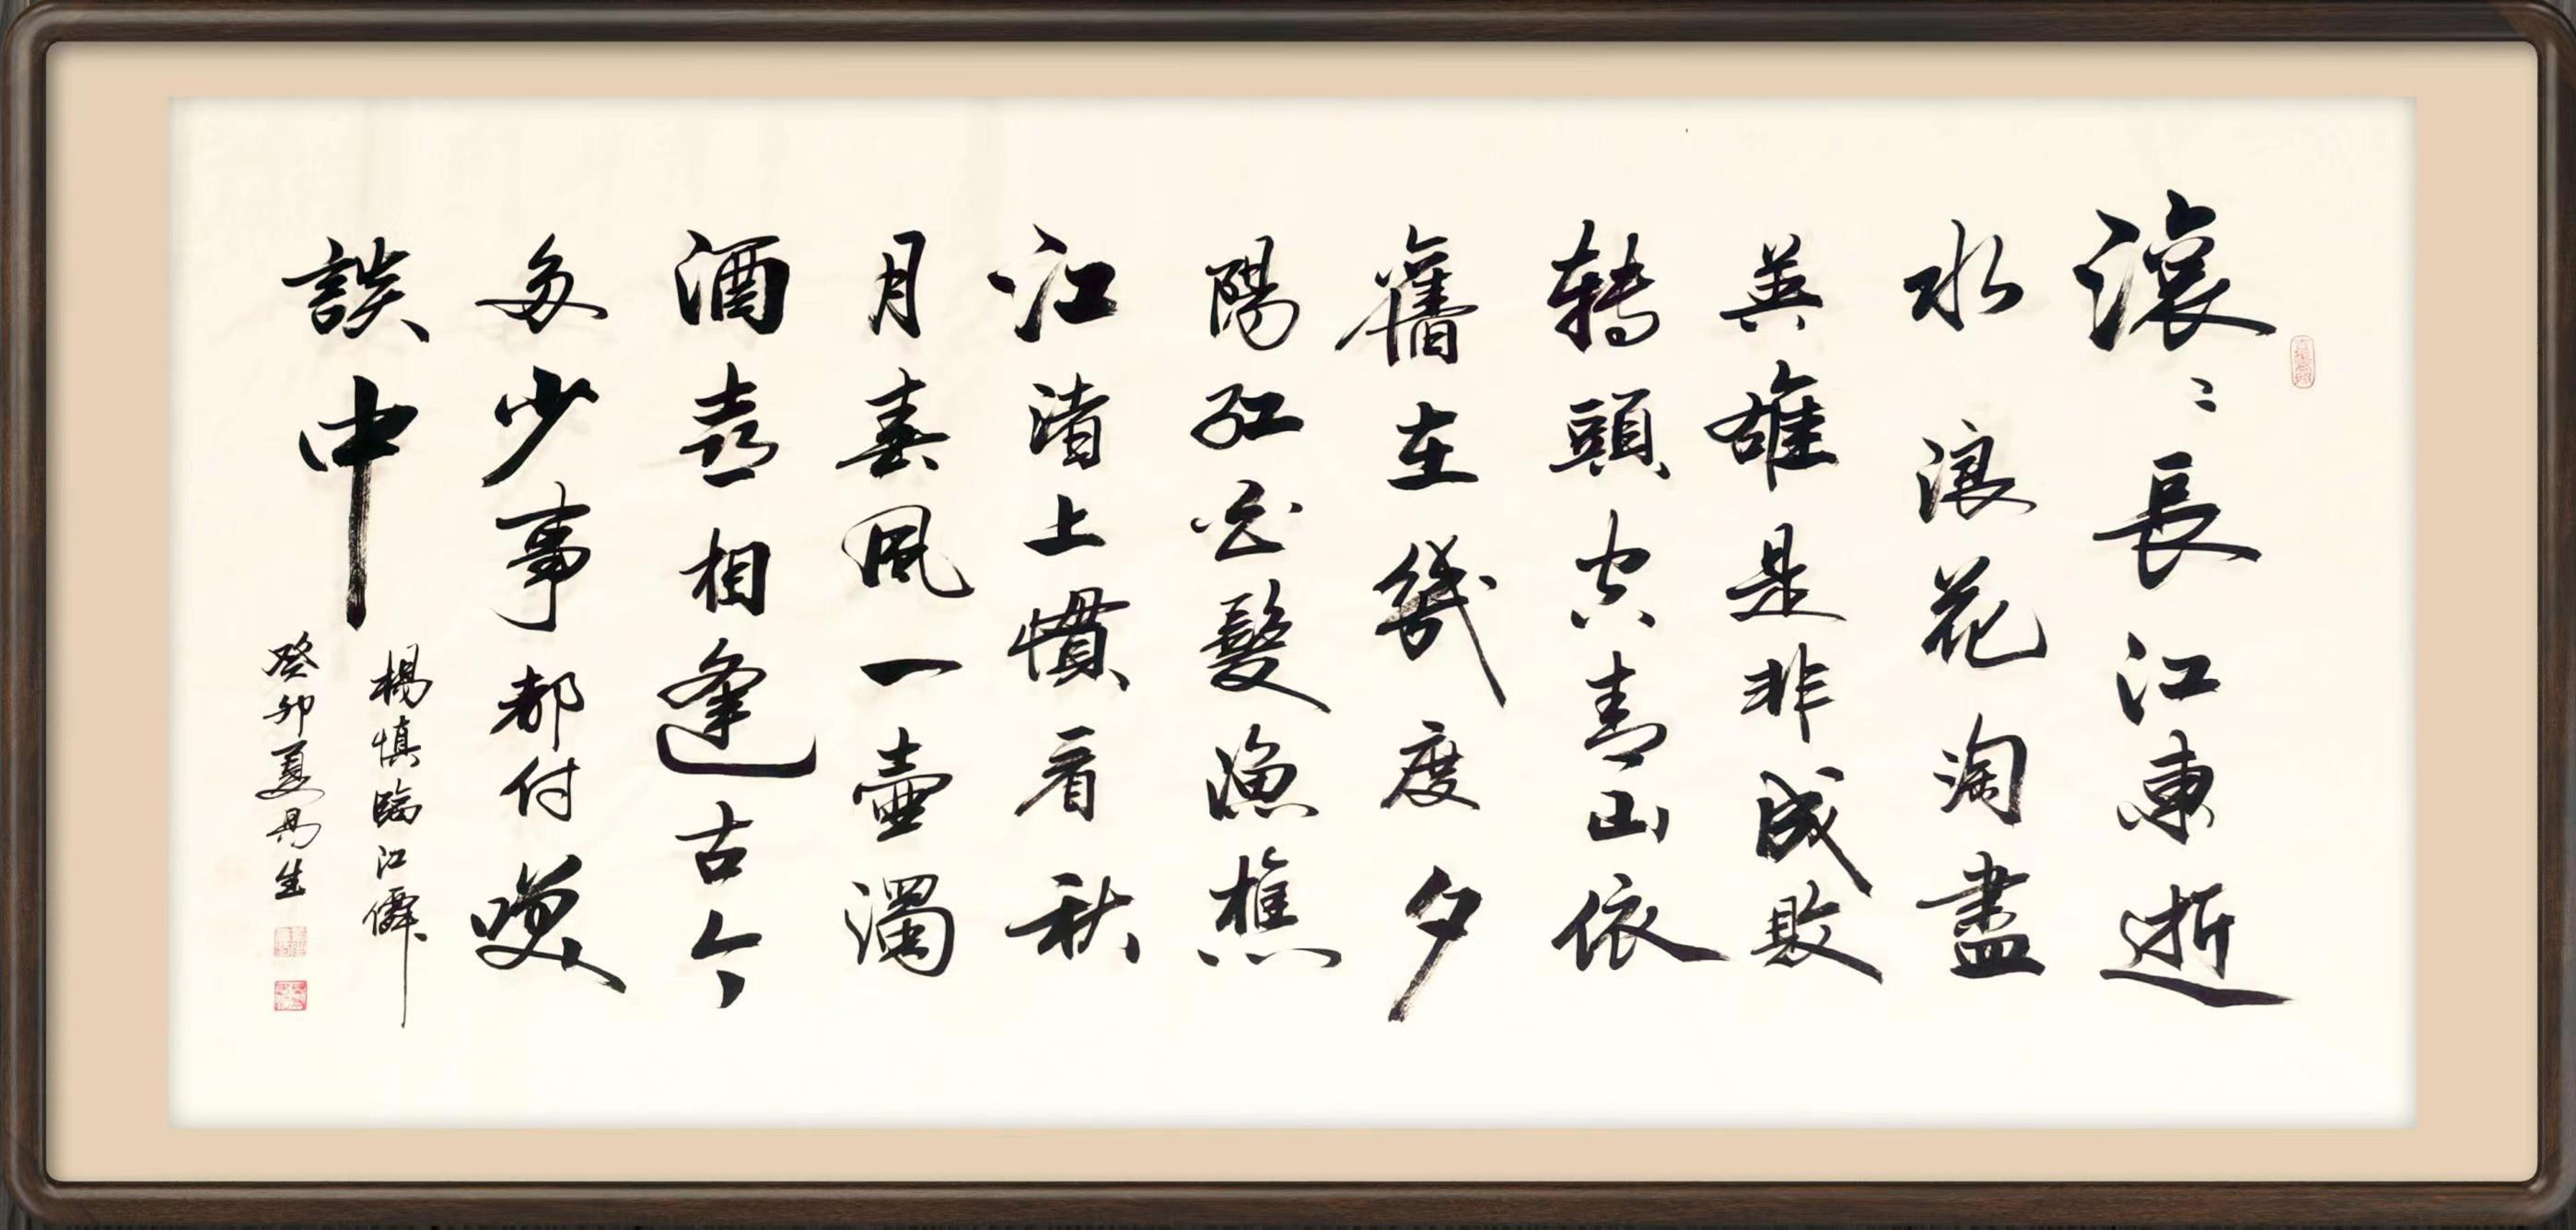 滾〻長江東逝
水浪花淘盡
英雄是非成敗
轉頭空青山依
舊在幾度夕
陽紅白髮漁樵
江渚上慣看秋
月春風一壺濁
酒喜相逢古今
多少事都付咲
談中
楊慎臨江僊
癸卯夏 生